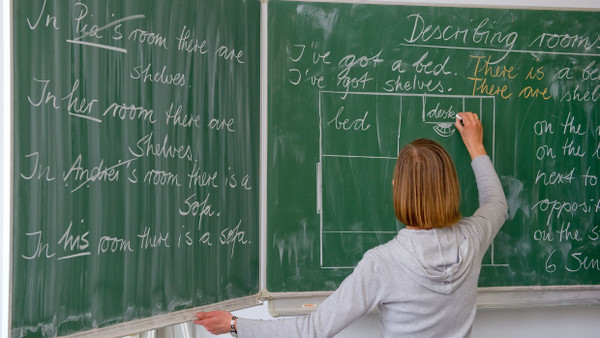 In Pia's room there are
shelves.
In her room there are
Shelves.
In André's room there is a
Sofa.
In his room there is a sofa.
Describing rooms
I've got a bed. There is a be
I've got shelves. There are shel
bed
desk
on the
on the
next to
opposit
on the s
6 Sin